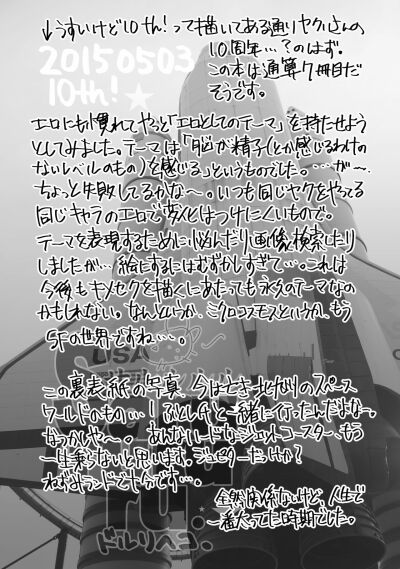 ↓うすいけど10th!って描いてある通りヤクさんの
10周年…?のはず。
この本は通算7冊目だ
そうです。
20150503
10th!★
エロにも慣れてやっと「エロとしてのテーマ」を持たせよう
としてみました。テーマは「脳が精子(とか感じるわけの
ないレベルのもの)を感じる」というものでした。…が〜、
ちょっと失敗してるかな〜。いつも同じヤクをやってる
同じキャラのエロで変化はつけにくいもので。
テーマを表現するために悩んだり画像検索したり
しましたが…絵にするにはむずかしすぎて…。これは
今後もキメセクを描くにあたっても永久のテーマなの
かもしれない。なんというか、ミクロコスモスというか、もう
SFの世界ですね…。
USA
この裏表紙の写真、今はときげなりのスペース
ワールドのもの…!
と一緒に行ったんだよな〜。
なつかしや〜。あんなハードなジェットコースター、もう
一生乗らないと思います。
だっけか?
ねずみランドで十分です…。
全然関係ないけど、人生で
一番太ってた時期でした。
ドルリヘコ.